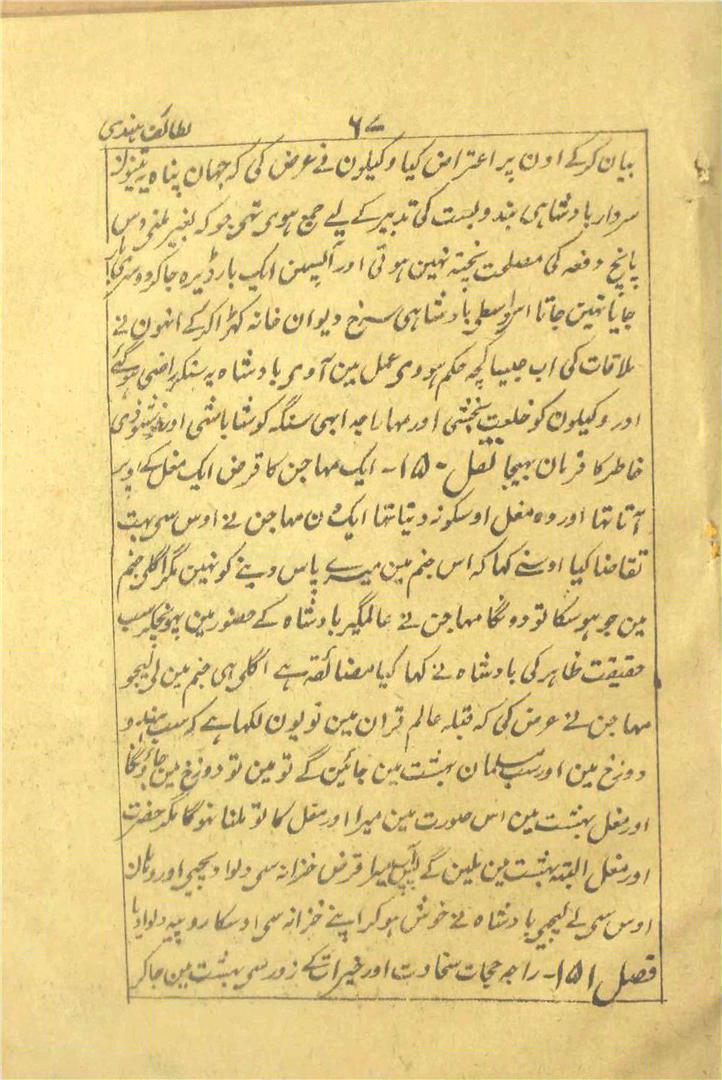 ۶۷
لطائف ہندی
بیان کرکے اون پر اعتراض کیا وکیلون نے عرض کی کہ جہان پناہ یہ تینون
سردار بادشاہی بندوبست کی تدبیر کے لیے جمع ہوی تہی جو کہ بغیر ملنی دس
پانچ دفعہ کی مصلحت پختہ نہین ہوتی اور آپسمین ایک بار ڈیرہ جاکر دوسری بار
جایا نہین جاتا اس واسطی بادشاہی سرخ دیوان خانہ کہڑا کرکے انہون نے
ملاقات کی اب جیسا کچہ حکم ہووی عمل مین آوی بادشاہ یہ سنکر راضی ہوگئے
اور وکیلون کو خلعت بخشی اور مہاراجہ ابہی سنگہ کو شاباشی اور خوشنودی
خاطر کا فرمان بہیجا نقل ۱۵۰- ایک مہاجن کا قرض ایک مغل کے اوپر
آتا تہا اور وہ مغل اوسکو نہ دیتا تہا ایک دن مہاجن نے اوس سی بہت
تقاضا کیا اوسنے کہا کہ اس جنم مین میرے پاس دینے کو نہین مگر اگلی جنم
مین جو ہوسکا تو دونگا مہاجن نے عالمگیر بادشاہ کے حضور مین پہونچکر سب
حقیقت ظاہر کی بادشاہ نے کہا کیا مضائقہ ہے اگلی ہی جنم مین لی لیجو
مہاجن نے عرض کی کہ قبلہ عالم قران مین تو یون لکہا ہے کہ سب ہندو
دوزخ مین اور سب مسلمان بہشت مین جائین گے تو مین تو دوزخ مین جاؤنگا
اور مغل بہشت مین اس صورت مین میرا اور مغل کا تو ملنا نہوگا مگر حضرت
اور مغل البتہ بہشت مین ملین گے پس میرا قرض خزانہ سی دلوا دیجیی اور وہان
اوس سی لے لیجیی بادشاہ نے خوش ہوکر اپنے خزانہ سی اوسکا روپیہ دلوادیا
فصل ۱۵۱- راجہ ججات سخاوت اور خیرات کے زور سی بہشت مین جاکر